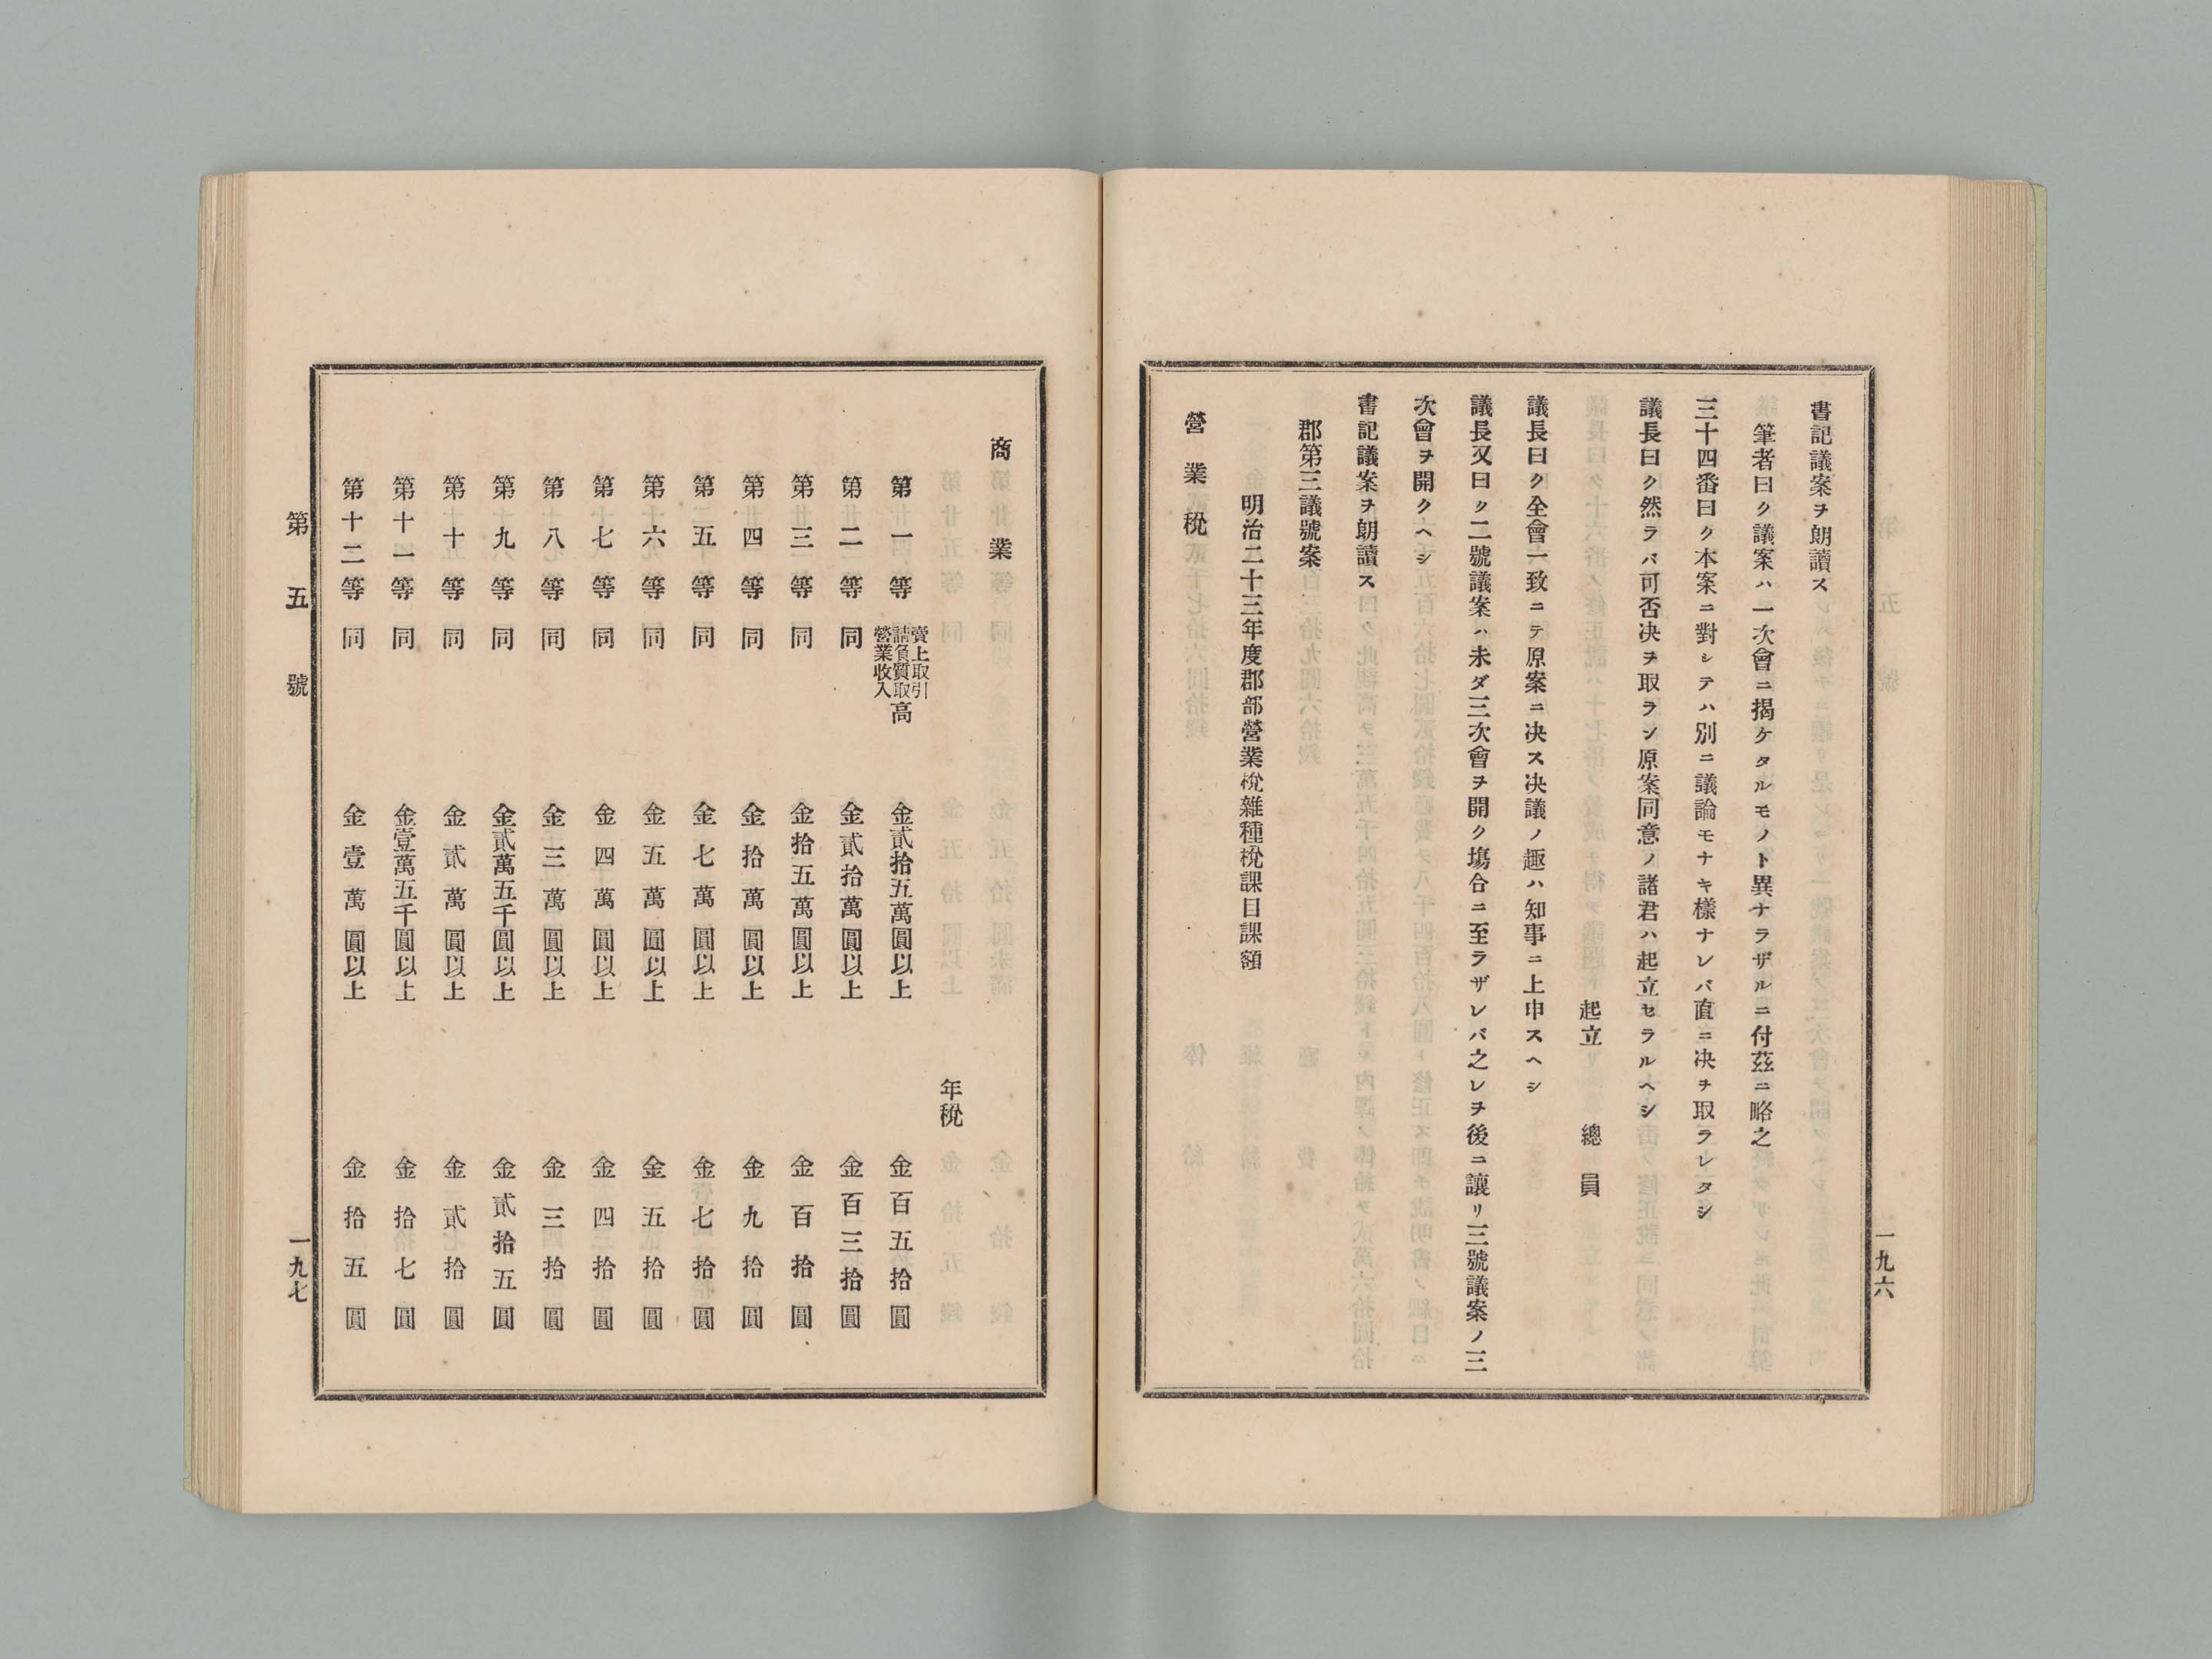 書記議案ヲ朗讀ス
筆者曰ク議案ハ一次會ニ揭ケタルモノト異ナラザルニ付茲ニ略之
三十四番曰ク本案ニ對シテハ別ニ議論モナキ樣ナレバ直ニ决ヲ取ラレタシ
議長曰ク然ラバ可否决ヲ取ラン原案同意ノ諸君ハ起立セラルヘシ
起立 總員
議長曰ク全會一致ニテ原案ニ决ス决議ノ趣ハ知事ニ上申スヘシ
議長又曰ク二號議案ハ未ダ三次會ヲ開ク塲合ニ至ラザレバ之レヲ後ニ讓リ三號議案ノ三
次會ヲ開クヘシ
書記議案ヲ朗讀ス
郡第三議號案
明治二十三年度郡部營業稅雜種稅課目課額
營業稅
一九六
商業
年稅
第一等 賣上取引請負質取營業收入高 金貳拾五萬圓以上 金百五拾圓
第二等 同 金貳拾萬圓以上 金百三拾圓
第三等 同 金拾五萬圓以上 金百拾圓
第四等 同 金拾萬圓以上 金九拾圓
第五等 同 金七萬圓以上 金七拾圓
第六等 同 金五萬圓以上 金五拾圓
第七等 同 金四萬圓以上 金四拾圓
第八等 同 金三萬圓以上 金三拾圓
第九等 同 金貳萬五千圓以上 金貳拾五圓
第十等 同 金貳萬圓以上 金貳拾圓
第十一等 同 金壹萬五千圓以上 金拾七圓
第十二等 同 金壹萬圓以上 金拾五圓
第五號
一九七